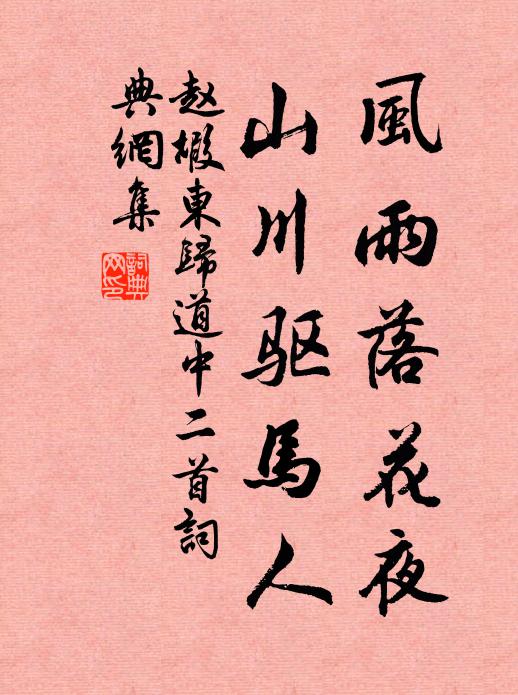 風雨落花夜
山川驱馬人
赵嘏東歸道中二首詞
典網集
詞典网印